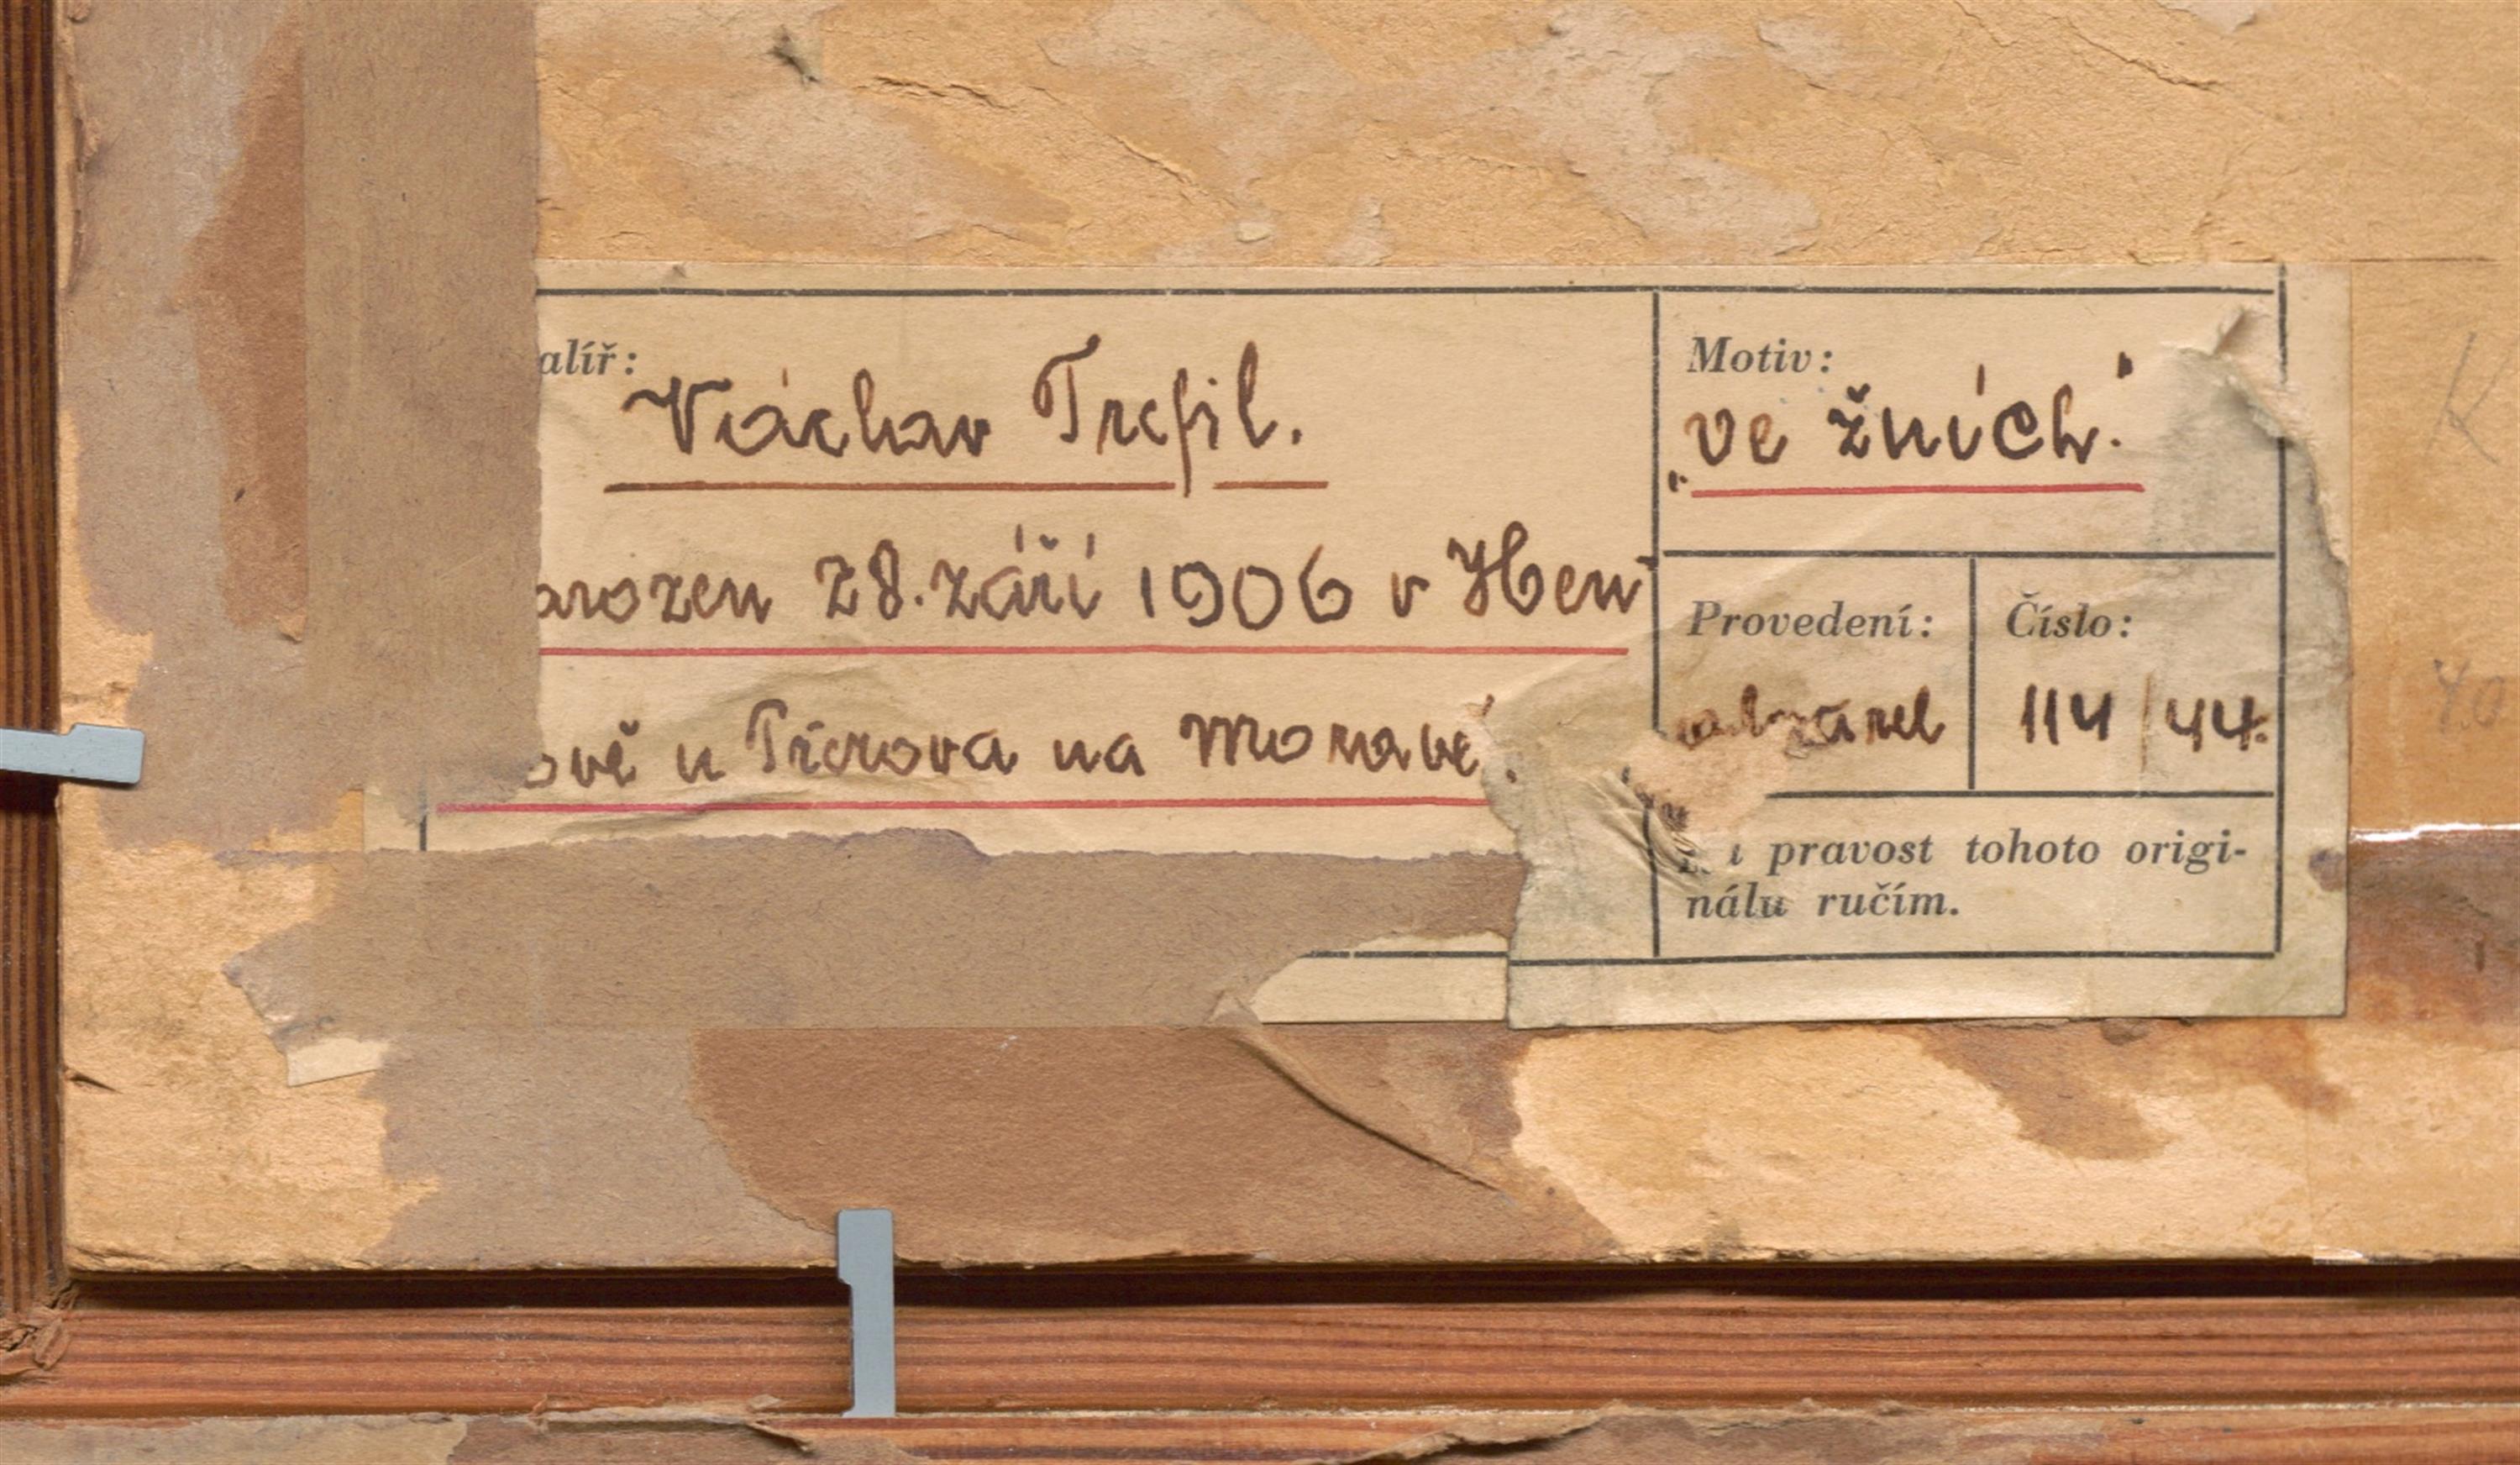 alíř:
Václav Trefil.
arozen 28. září 1906 v Hem
ově u Přerova na Moravě.
Motiv:
„ve žních."
Provedení:
Číslo:
114/44.
i pravost tohoto origi-
nálu ručím.
K